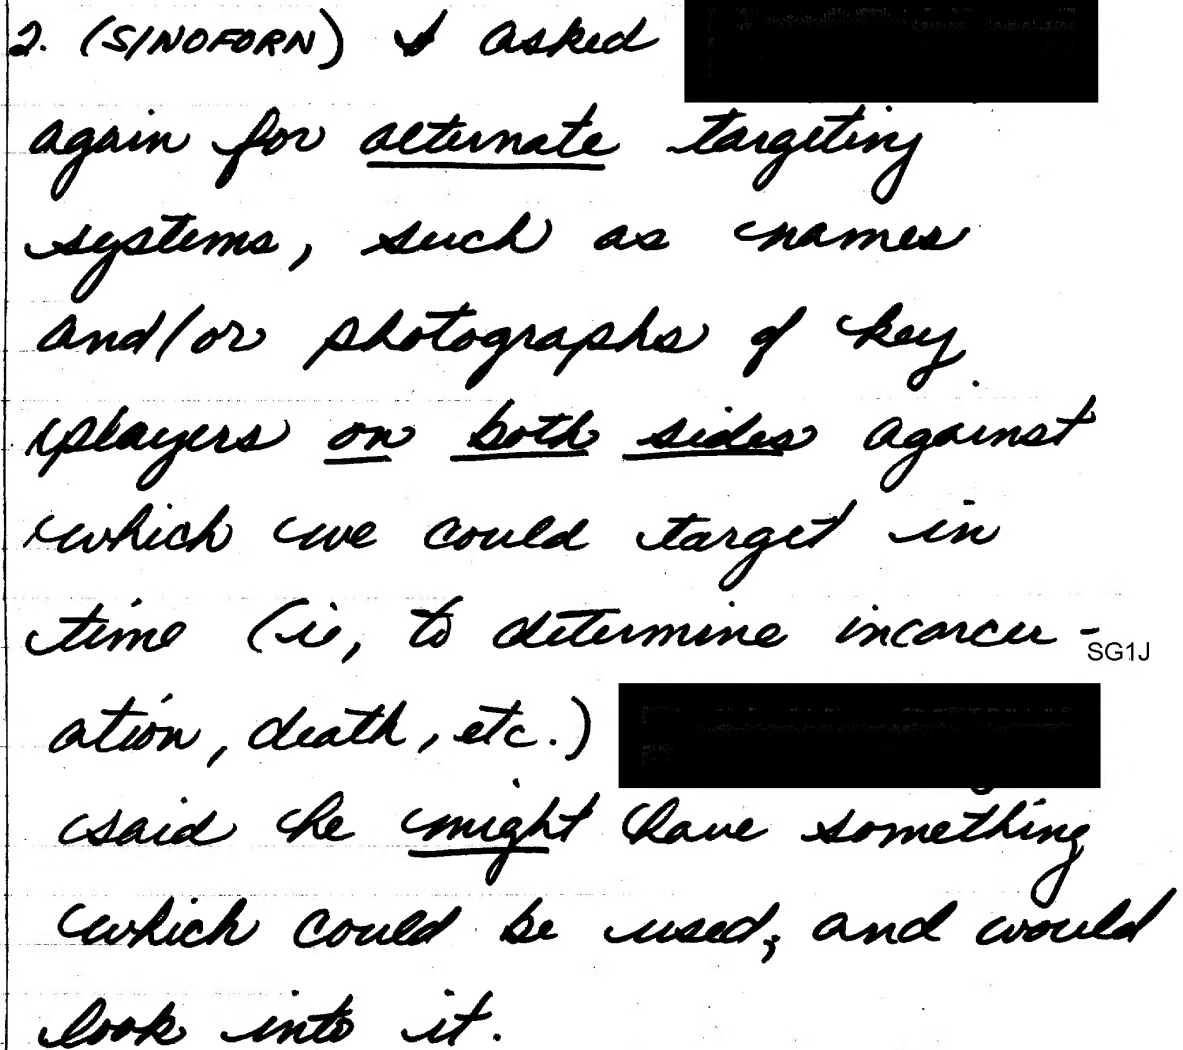 2. (S/NOFORN) I asked
again for alternate targeting
systems, such as names
and/or photographs of key
players on both sides against
which we could target in
time (ie, to determine incarcer-
SG1J
ation, death, etc.)
said he might have something
which could be used, and would
look into it.